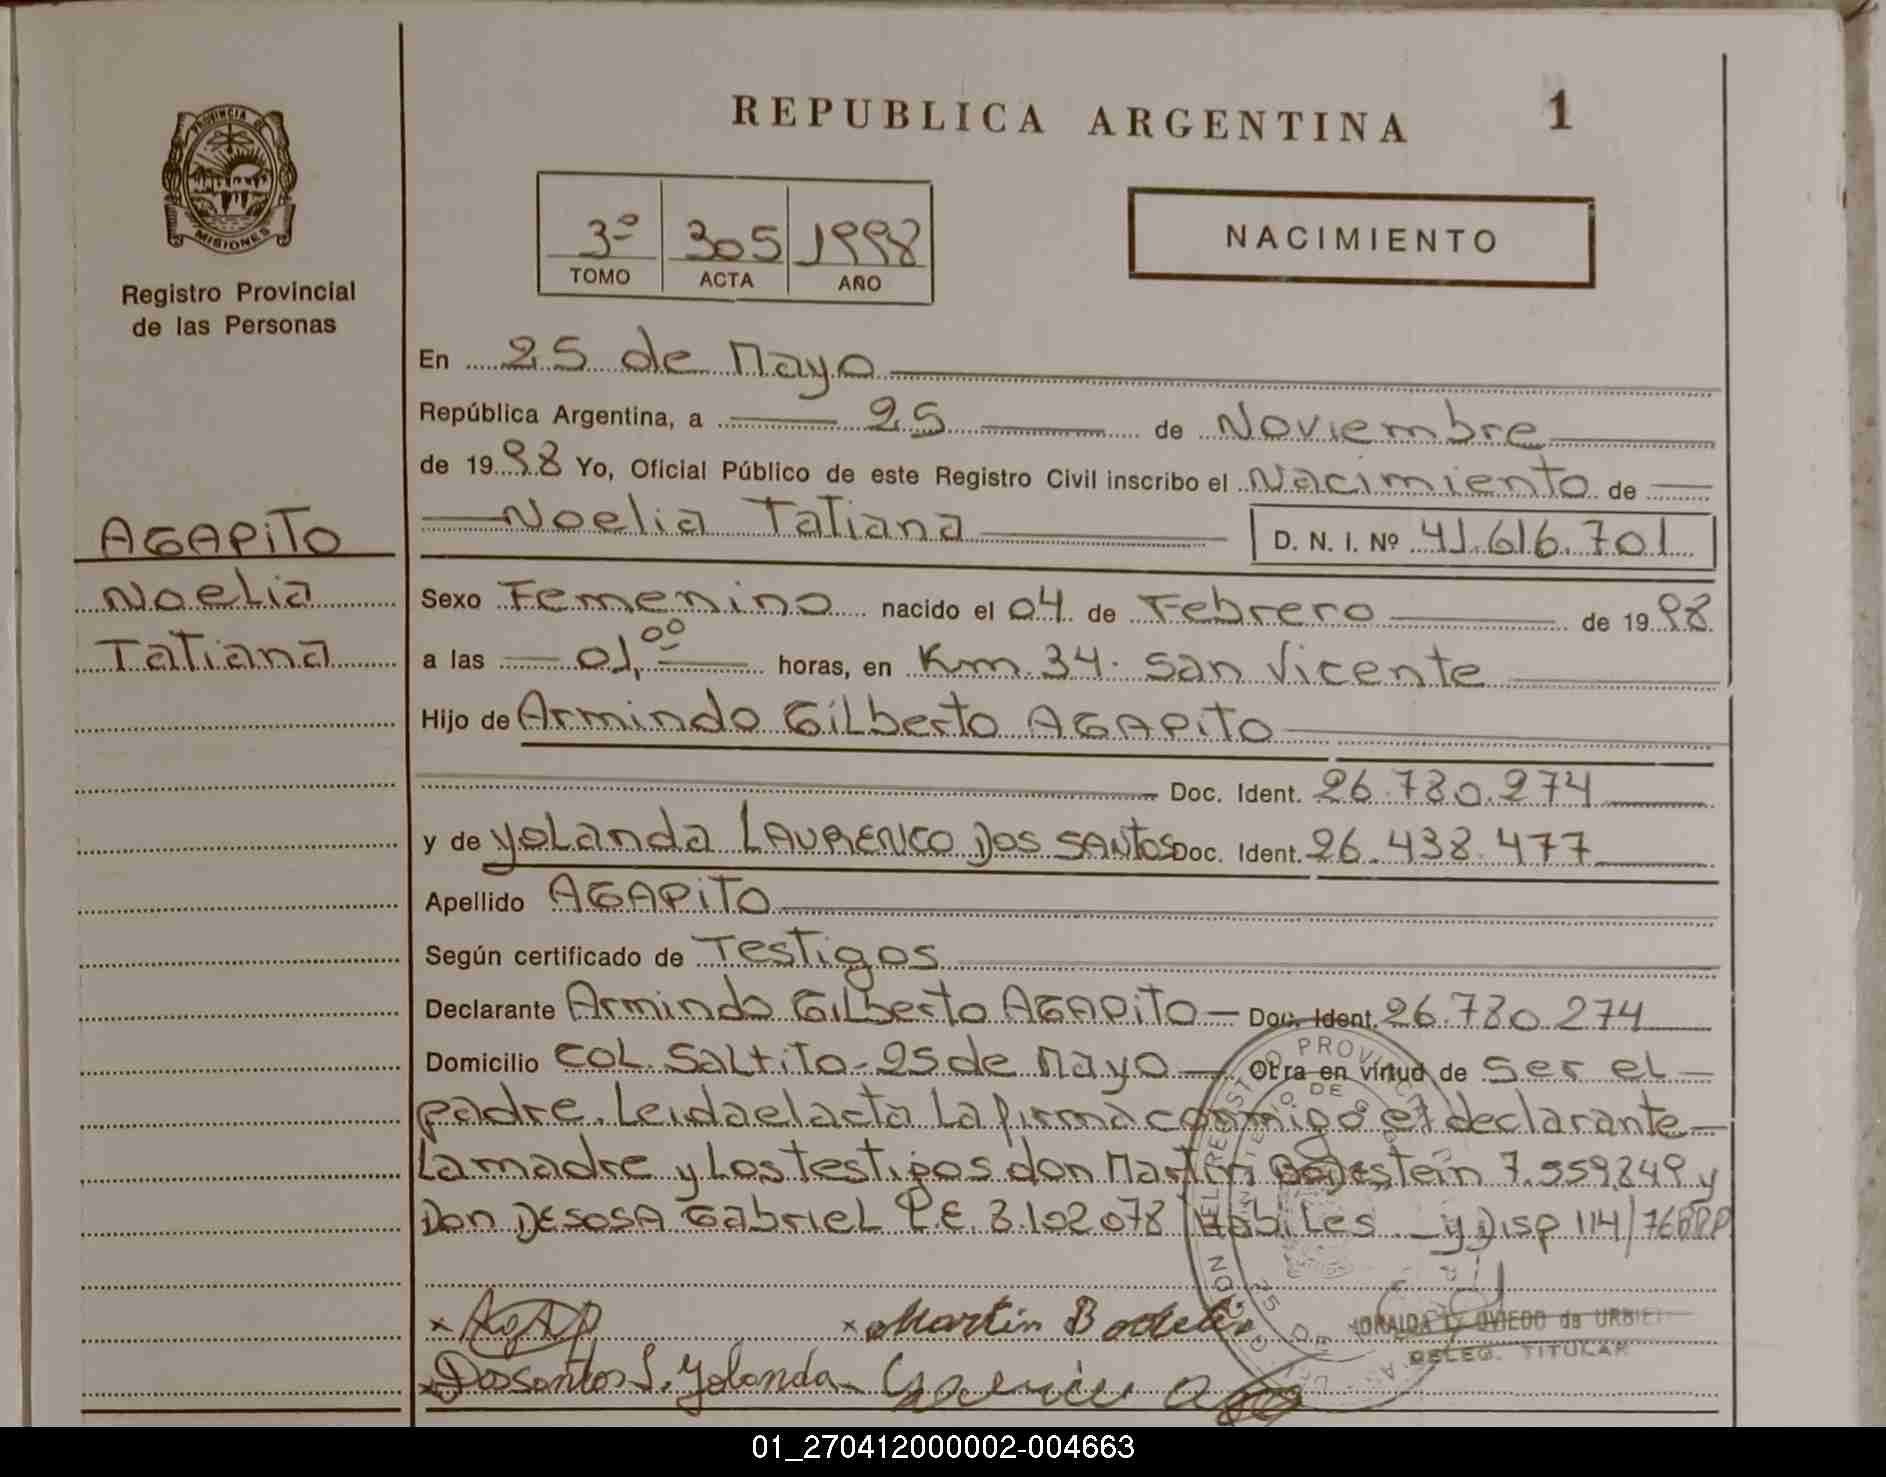 REPUBLICA ARGENTINA 1
PROVINCIA DE
MISIONES
Registro Provincial
de las Personas
3º 305 1998
TOMO ACTA AÑO
NACIMIENTO
En 25 de Mayo
República Argentina, a 25 de Noviembre
de 1998 Yo, Oficial Público de este Registro Civil inscribo el Nacimiento de
Noelia Tatiana D. N. I. Nº 41.616.701
AGAPITO
NOELIA
TATIANA
Sexo Femenino nacido el 04 de Febrero de 1998
a las 01,00 horas, en Km 34. San Vicente
Hijo de Armindo Gilberto AGAPITO
Doc. Ident. 26.780.274
y de Yolanda LAURENCO DOS SANTOS Doc. Ident. 26.438.477
Apellido AGAPITO
Según certificado de Testigos
Declarante Armindo Gilberto AGAPITO Doc. Ident. 26.780.274
Domicilio COL. Saltito - 25 de Mayo Obra en virtud de ser el
padre. Leida el acta la firma conmigo el declarante
La madre y Los testigos don Martin 7.559.849 y
Don DESOSA Gabriel P.E. 8.102.078 Habiles y Disp 114/76 RPP
Martin
OVIEDO de
DELEG. TITULAR
Dosantos L. Yolanda
01_270412000002-004663